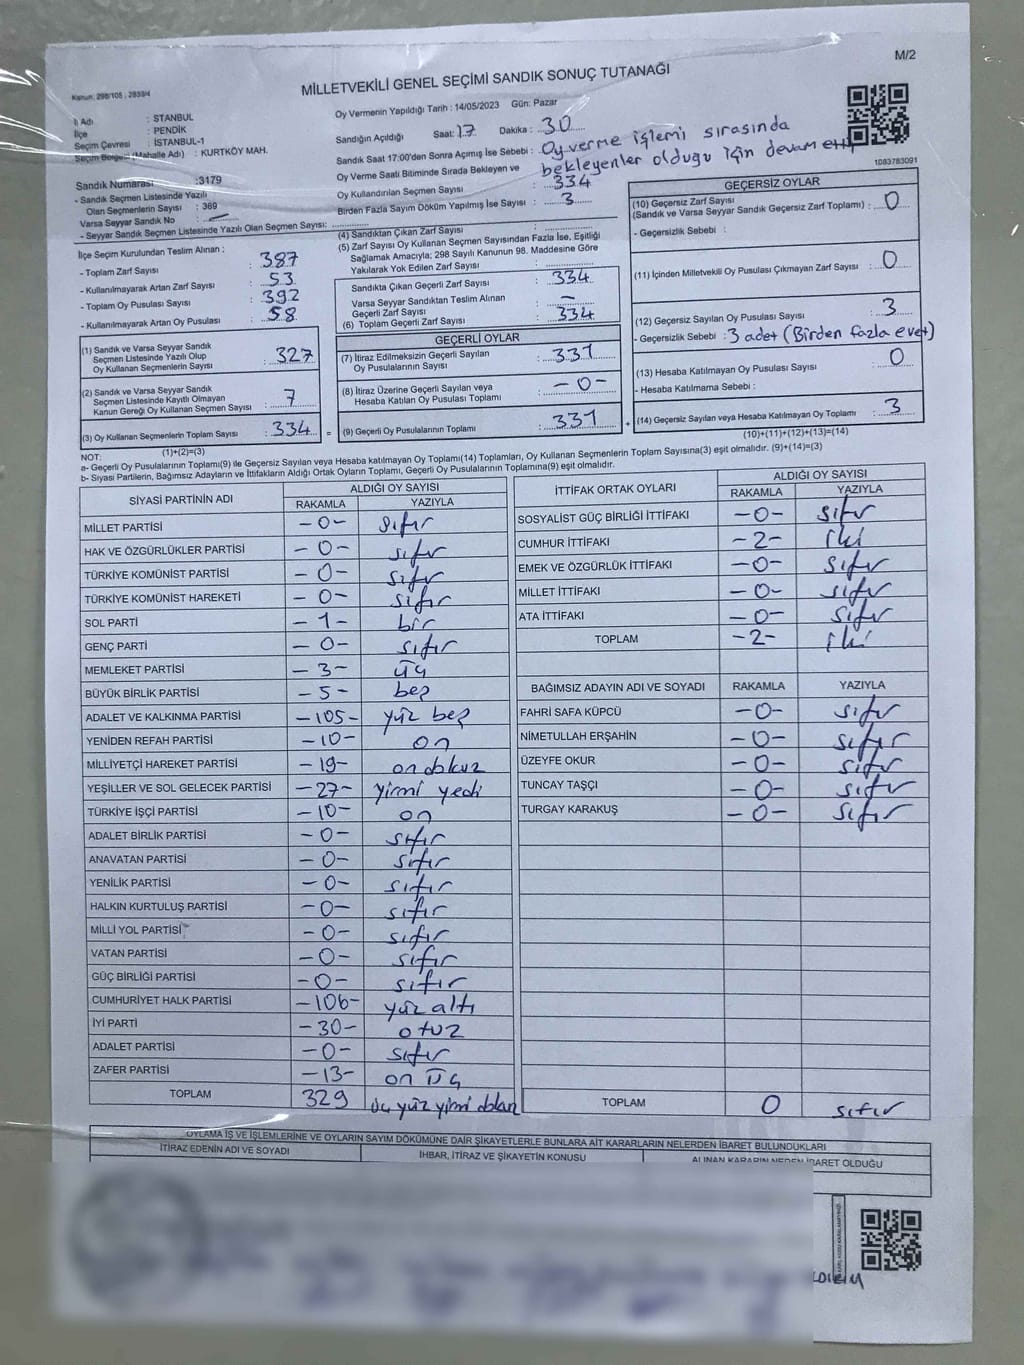 M/2
MİLLETVEKİLİ GENEL SEÇİMİ SANDIK SONUÇ TUTANAĞI
Kanun: 298/105 ; 2839/4
İl Adı : İSTANBUL
İlçe : PENDİK
Seçim Çevresi : İSTANBUL-1
Seçim Bölgesi (Mahalle Adı) : KURTKÖY MAH.
Sandık Numarası :3179
- Sandık Seçmen Listesinde Yazılı
Olan Seçmenlerin Sayısı : 369
Varsa Seyyar Sandık No :
- Seyyar Sandık Seçmen Listesinde Yazılı Olan Seçmen Sayısı:
Oy Vermenin Yapıldığı Tarih : 14/05/2023 Gün: Pazar
Sandığın Açıldığı Saat: 17 Dakika : 30
Sandık Saat 17:00'den Sonra Açımış İse Sebebi : Oy verme işlemi sırasında
Oy Verme Saati Bitiminde Sırada Bekleyen ve bekleyenler olduğu için devam etti
Oy Kullandırılan Seçmen Sayısı : 334
Birden Fazla Sayım Döküm Yapılmış İse Sayısı : 3
1083783091
İlçe Seçim Kurulundan Teslim Alınan :
- Toplam Zarf Sayısı : 387
- Kullanılmayarak Artan Zarf Sayısı : 53
- Toplam Oy Pusulası Sayısı : 392
- Kullanılmayarak Artan Oy Pusulası : 58
(1) Sandık ve Varsa Seyyar Sandık
Seçmen Listesinde Yazılı Olup
Oy Kullanan Seçmenlerin Sayısı : 327
(2) Sandık ve Varsa Seyyar Sandık
Seçmen Listesinde Kayıtlı Olmayan
Kanun Gereği Oy Kullanan Seçmen Sayısı : 7
(3) Oy Kullanan Seçmenlerin Toplam Sayısı : 334 =
(1)+(2)=(3)
(4) Sandıktan Çıkan Zarf Sayısı :
(5) Zarf Sayısı Oy Kullanan Seçmen Sayısından Fazla İse, Eşitliği
Sağlamak Amacıyla; 298 Sayılı Kanunun 98. Maddesine Göre
Yakılarak Yok Edilen Zarf Sayısı :
Sandıkta Çıkan Geçerli Zarf Sayısı : 334
Varsa Seyyar Sandıktan Teslim Alınan
Geçerli Zarf Sayısı : –
(6) Toplam Geçerli Zarf Sayısı : 334
GEÇERLİ OYLAR
(7) İtiraz Edilmeksizin Geçerli Sayılan
Oy Pusulalarının Sayısı : 331
(8) İtiraz Üzerine Geçerli Sayılan veya
Hesaba Katılan Oy Pusulası Toplamı : -0-
(9) Geçerli Oy Pusulalarının Toplamı : 331 +
GEÇERSİZ OYLAR
(10) Geçersiz Zarf Sayısı
(Sandık ve Varsa Seyyar Sandık Geçersiz Zarf Toplamı) : 0
- Geçersizlik Sebebi :
(11) İçinden Milletvekili Oy Pusulası Çıkmayan Zarf Sayısı : 0
(12) Geçersiz Oy Pusulası Sayısı : 3
- Geçersizlik Sebebi : 3 adet (Birden fazla evet)
(13) Hesaba Katılmayan Oy Pusulası Sayısı : 0
- Hesaba Katılmama Sebebi :
(14) Geçersiz Sayılan veya Hesaba Katılmayan Oy Toplamı : 3
(10)+(11)+(12)+(13)=(14)
NOT:
a- Geçerli Oy Pusulaları Toplamı(9) ile Geçersiz Sayılan veya Hesaba katılmayan Oy Toplamı(14) Toplamları, Oy Kullanan Seçmenlerin Toplam Sayısına(3) eşit olmalıdır. (9)+(14)=(3)
b- Siyasi Partilerin, Bağımsız Adayların ve İttifakların Aldığı Ortak Oyların Toplamı, Geçerli Oy Pusulalarının Toplamına(9) eşit olmalıdır.
SİYASİ PARTİNİN ADI ALDIĞI OY SAYISI
RAKAMLA YAZIYLA
MİLLET PARTİSİ -0- sıfır
HAK VE ÖZGÜRLÜKLER PARTİSİ -0- sıfır
TÜRKİYE KOMÜNİST PARTİSİ -0- sıfır
TÜRKİYE KOMÜNİST HAREKETİ -0- sıfır
SOL PARTİ -1- bir
GENÇ PARTİ -0- sıfır
MEMLEKET PARTİSİ -3- üç
BÜYÜK BİRLİK PARTİSİ -5- beş
ADALET VE KALKINMA PARTİSİ -105- yüz beş
YENİDEN REFAH PARTİSİ -10- on
MİLLİYETÇİ HAREKET PARTİSİ -19- on dokuz
YEŞİLLER VE SOL GELECEK PARTİSİ -27- yirmi yedi
TÜRKİYE İŞÇİ PARTİSİ -10- on
ADALET BİRLİK PARTİSİ -0- sıfır
ANAVATAN PARTİSİ -0- sıfır
YENİLİK PARTİSİ -0- sıfır
HALKIN KURTULUŞ PARTİSİ -0- sıfır
MİLLİ YOL PARTİSİ -0- sıfır
VATAN PARTİSİ -0- sıfır
GÜÇ BİRLİĞİ PARTİSİ -0- sıfır
CUMHURİYET HALK PARTİSİ -106- yüz altı
İYİ PARTİ -30- otuz
ADALET PARTİSİ -0- sıfır
ZAFER PARTİSİ -13- on üç
TOPLAM 329 üç yüz yirmi
İTTİFAK ORTAK OYLARI ALDIĞI OY SAYISI
RAKAMLA YAZIYLA
SOSYALİST GÜÇ BİRLİĞİ İTTİFAKI -0- sıfır
CUMHUR İTTİFAKI -2- iki
EMEK VE ÖZGÜRLÜK İTTİFAKI -0- sıfır
MİLLET İTTİFAKI -0- sıfır
ATA İTTİFAKI -0- sıfır
TOPLAM -2- iki
BAĞIMSIZ ADAYIN ADI VE SOYADI RAKAMLA YAZIYLA
FAHRİ SAFA KÜPCÜ -0- sıfır
NİMETULLAH ERŞAHİN -0- sıfır
ÜZEYFE OKUR -0- sıfır
TUNCAY TAŞÇI -0- sıfır
TURGAY KARAKUŞ -0- sıfır
TOPLAM 0 sıfır
OYLAMA İŞ VE İŞLEMLERİNE VE OYLARIN SAYIM DÖKÜMÜNE DAİR ŞİKAYETLERLE BUNLARA AİT KARARLARIN NELERDEN İBARET BULUNDUKLARI
İTİRAZ EDENİN ADI VE SOYADI İHBAR, İTİRAZ VE ŞİKAYETİN KONUSU ALINAN KARARIN NEDEN İBARET OLDUĞU